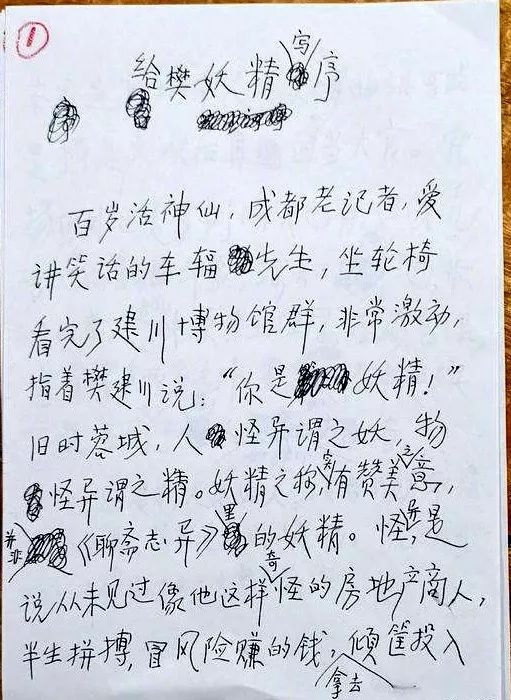 1
给樊妖精写序
百岁活神仙，成都老记者，爱
讲笑话的车辐先生，坐轮椅
看完了建川博物馆群，非常激动，
指着樊建川说：“你是妖精！”
旧时蓉城，人怪异谓之妖，物
怪异谓之精。妖精之称，实有赞美之意，
并非《聊斋志异》里的妖精。怪，是
说从未见过像他这样奇怪的房地产商人，
半生拼搏，冒风险赚的钱，倾筐投入
拿去